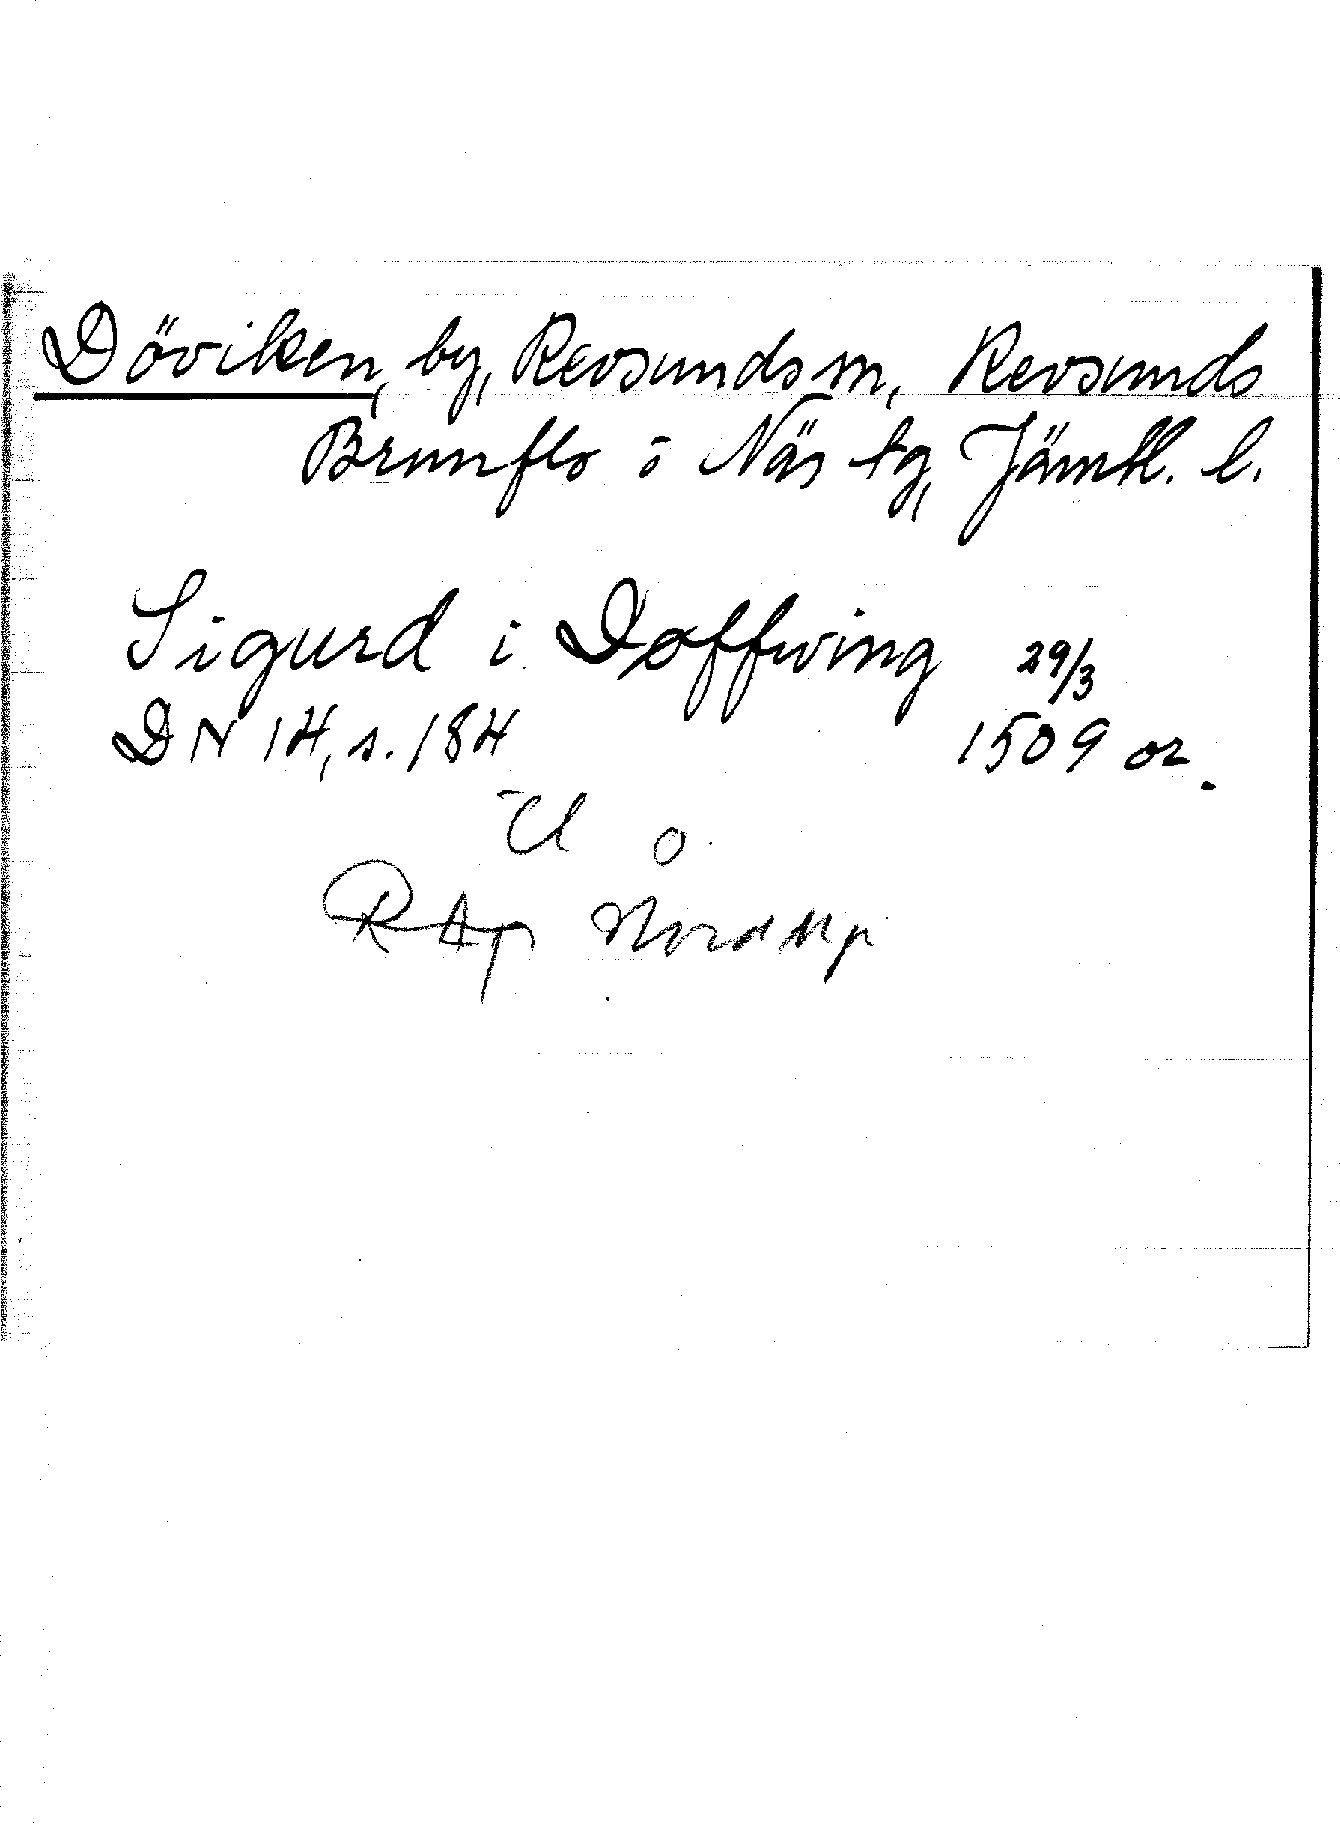 Döviken, by, Revsunds sn, Revsunds
Brunflo o Näs tg, Jämtl. l.
Sigurd i Døffwing 29/3
DN 14, s. 184 1509 or.
U O
RAp Nord